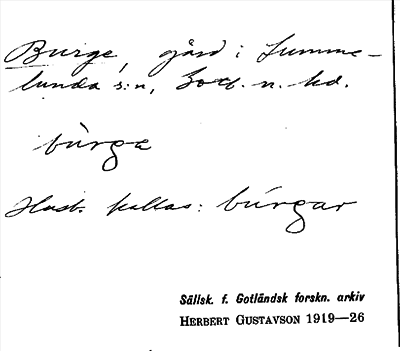 Burge, gård i Lumme-
lunda s:n, Gotl. n. hd.
bùrga
Husb. kallas: bùrgar
Sällsk. f. Gotländsk forskn. arkiv
HERBERT GUSTAVSON 1919—26